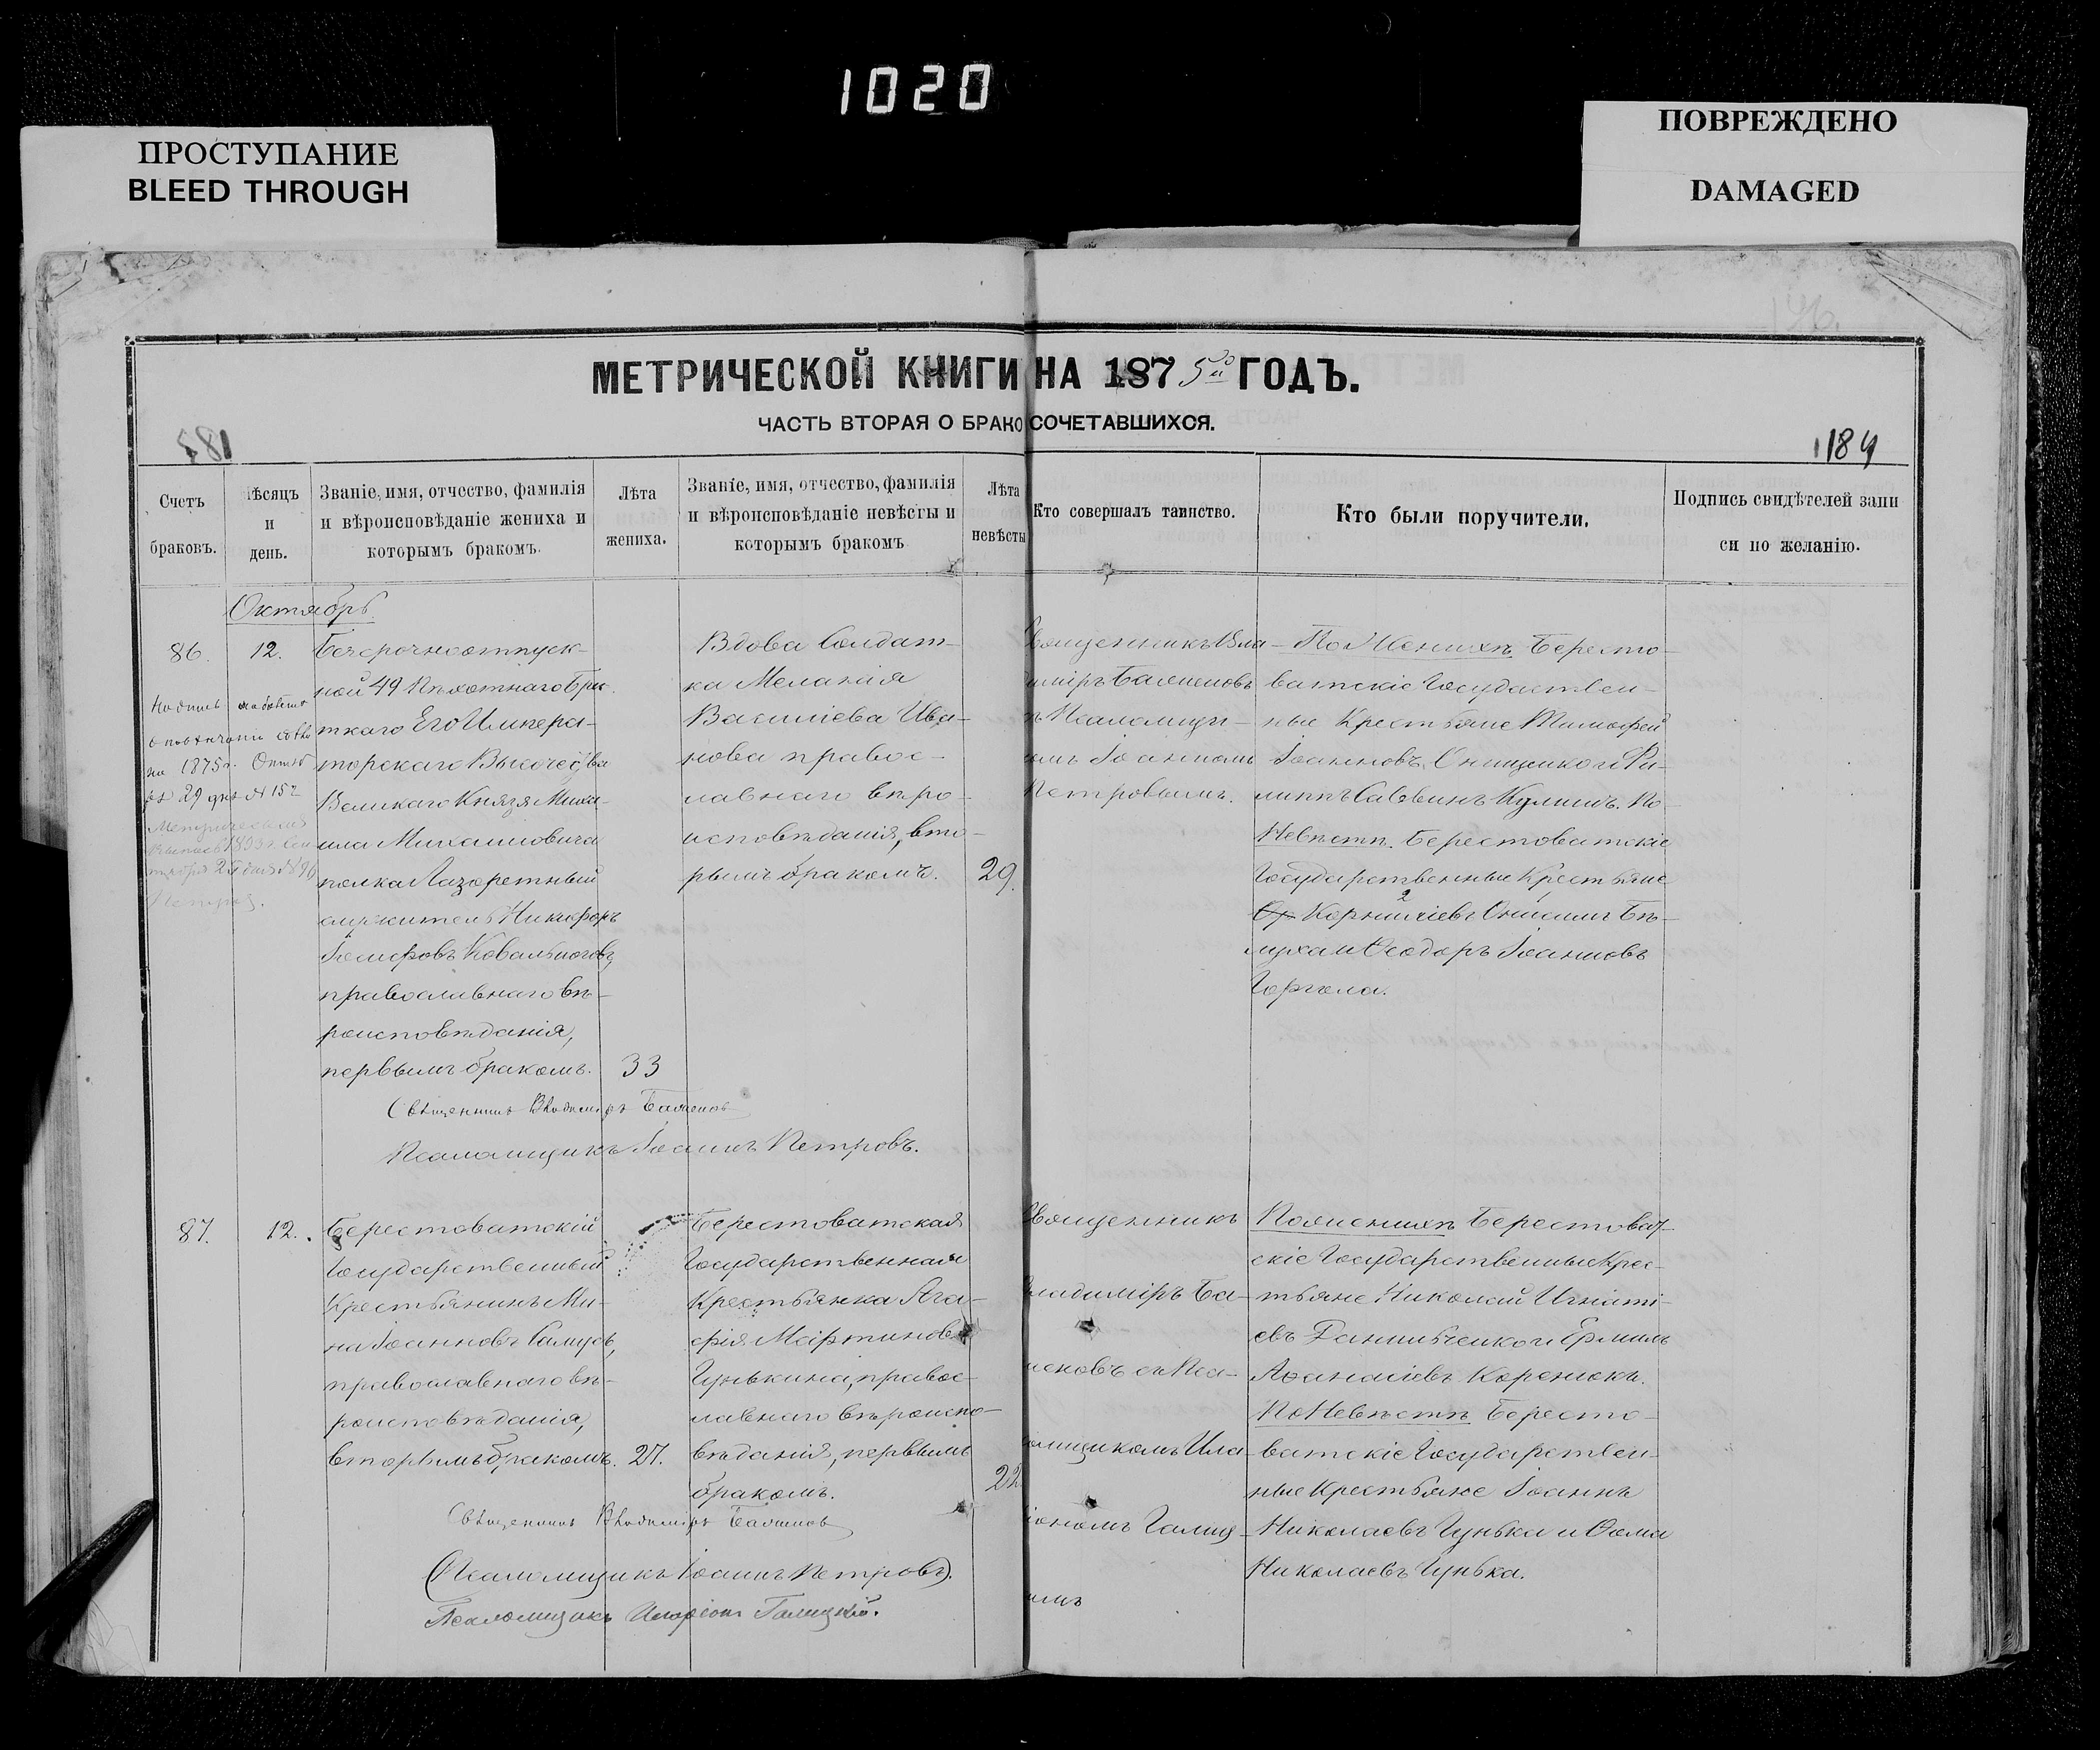 1020
ПРОСТУПАНИЕ
BLEED THROUGH
ПОВРЕЖДЕНО
DAMAGED
МЕТРИЧЕСКОЙ КНИГИ НА 1875й ГОДЪ.
ЧАСТЬ ВТОРАЯ О БРАКОСОЧЕТАВШИХСЯ.
184
Счетъ
браковъ.
Мѣсяцъ
и
день.
Званіе, имя, отчество, фамилія
и вѣроисповѣданіе жениха и
которымъ бракомъ.
Лѣта
жениха.
Званіе, имя, отчество, фамилія
и вѣроисповѣданіе невѣсты и
которымъ бракомъ
Лѣта
невѣсты
Кто совершалъ таинство.
Кто были поручители.
Подпись свидѣтелей запи
си по желанію.
Октябрь
86.
12.
Безсрочноотпуск-
ной 49 Пѣхотнаго Брес-
тскаго Его Импера-
торскаго Высочества
Великаго Князя Миха-
ила Михаиловича
полка Лазаретный
служитель Никифоръ
православнаго вѣ-
роисповѣданія,
первымъ бракомъ.
33
Вдова Солдат-
ка Меланія
Василіева Ива-
нова правос-
лавнаго вѣро-
исповѣданія, вто-
рымъ бракомъ.
29.
Священникъ Вла-
диміръ Балшемовъ
Псаломщи-
комъ Іоанномъ
Петровымъ.
По Женихѣ Бересто-
ватскіе Государствен-
ные Крестьяне Тимофей
Іоанновъ Онищенко и Фи-
липпъ Саввинъ Кулишъ. По
Невѣстѣ. Берестоватскіе
Государственные Крестьяне
Корниліевъ Онисимъ Бѣ-
луха и Ѳеодоръ Іоанновъ
Горгола.
на 1875 г. Октяб
29 дня № 152
Священникъ Владиміръ
Псаломщикъ Іоаннъ Петровъ.
87.
12.
Берестоватскій
Государственный
Крестьянинъ Ми-
на Іоанновъ Самусь,
православнаго вѣ-
роисповѣданія,
вторымъ бракомъ.
27.
Берестоватская
Государственная
Крестьянка Ага-
фія Мартинова
Гунькина, правос-
лавнаго вѣроиспо-
вѣданія, первымъ
бракомъ.
22
Священникъ
Владиміръ Ба-
Пса-
ломщикомъ Ила-
ріономъ Галиц-
кимъ
По женихѣ Берестоват-
скіе Государственные Крес-
тьяне Николай Игнаті-
евъ Данильченко и Ермилъ
Аѳанасіевъ Коренюкъ.
По Невѣстѣ Бересто-
ватскіе Государствен-
ные Крестьяне Іоаннъ
Николаевъ Гунька и Ѳома
Николаевъ Гунька.
Священникъ Владиміръ
(Псаломщикъ Іоаннъ Петровъ).
Псаломщикъ Иларіонъ Галицкій.